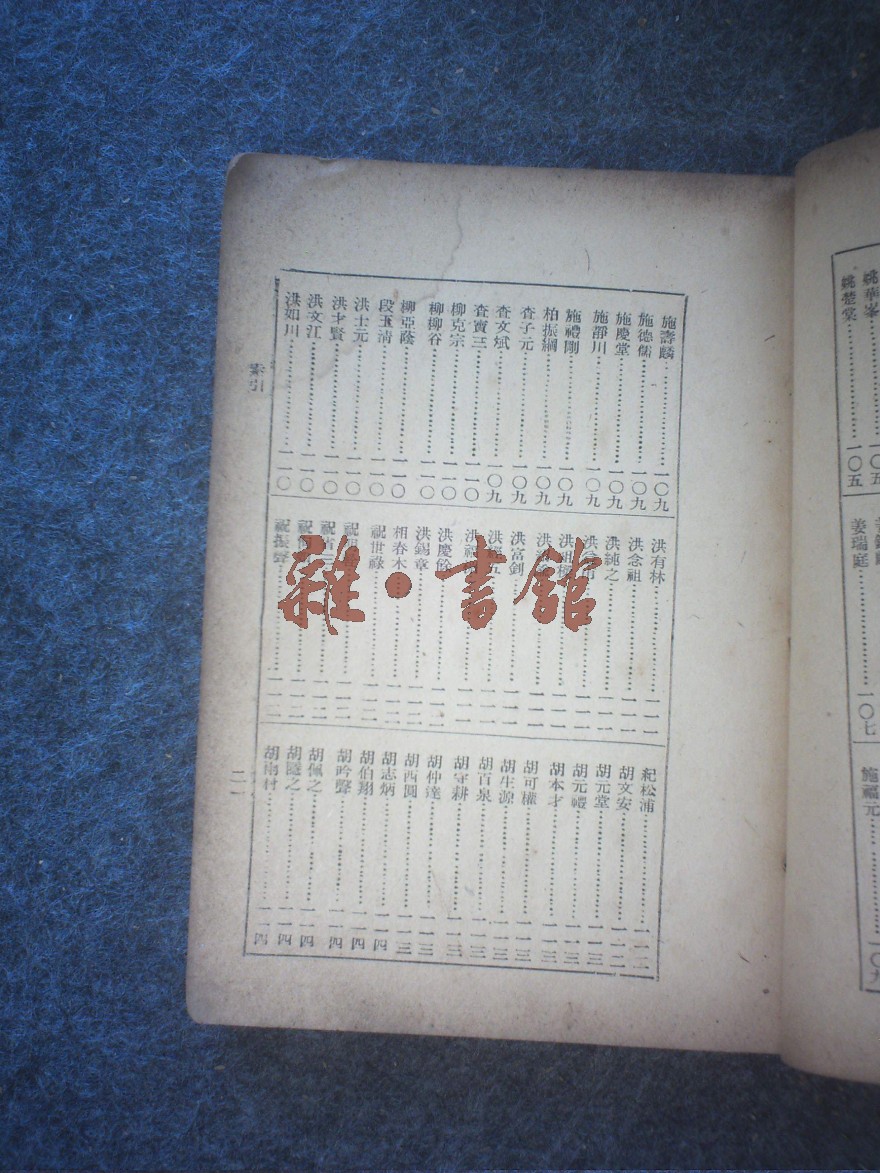 姚華峯……一〇五
姚楚棠……一〇五
姜瑞庭……一〇七
施福元……一〇九
施壽麟……一〇九
施德儒……一〇九
施慶堂……一〇九
施靜川……一〇九
施禮剛……一〇九
柏振綱……一〇九
查子元……一〇九
查文斌……一〇九
查寶三……一一〇
柳克宗……一一〇
柳柳谷……一一〇
柳亞蔭……一一〇
段玉清……一一〇
洪士元……一一〇
洪才賢……一一〇
洪文江……一一〇
洪如川……一一〇
洪有林……一一一
洪念祖……一一一
洪純之……一一一
洪富釗……一一一
洪慶餘……一一一
洪錫章……一一二
相春木……一一二
祝世祿……一一二
祝振聲……一一二
紀松浦……一一二
胡文安……一一二
胡元堂……一一三
胡元禮……一一三
胡本才……一一三
胡可權……一一三
胡生源……一一三
胡百泉……一一三
胡守耕……一一三
胡仲達……一一三
胡西園……一一三
胡志炳……一一四
胡伯翔……一一四
胡吟聲……一一四
胡佩之……一一四
胡隧之……一一四
胡雨村……一一四
索引
雜·書館